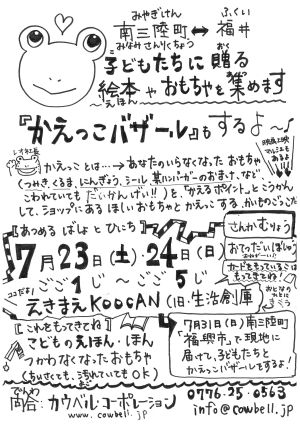 みやぎけん
南三陸町↔福井
みなみさんりくちょう ふくい
子どもたちに贈る
絵本やおもちゃを集めます
『かえっこバザール』もするよ〜
かえっことは…→あなたのいらなくなったおもちゃ
(つみき、くるま、にんぎょう、シール、某ハンバーガーのおまけ、など、
こわれていてもだいかんげい!!)を、「かえるポイント」とこうかん
して、ショップにあるほしいおもちゃとかえっこする、かいものごっこだ
【あつめるばしょとひにち】
さんかむりょう
7月23日(土)・24日(日)
ごご1じ〜ごご5じ
おてつだいぼしゅう
カードをもっている人は
もってきてね!
ココだよ!
えきまえKOOCAN(旧:生活創庫)
【これをもってきてね】
こどものえほん・ほん
つかわなくなったおもちゃ
(ちいさくても、汚れていてもOK)
7月31日(日)南三陸町
「福興市」で現地に
届けて、子どもたちと
かえっこバザールをするよ!
でんわ
問合:カウベル・コーポレーション
www.cowbell.jp
0776-25-0563
info@cowbell.jp